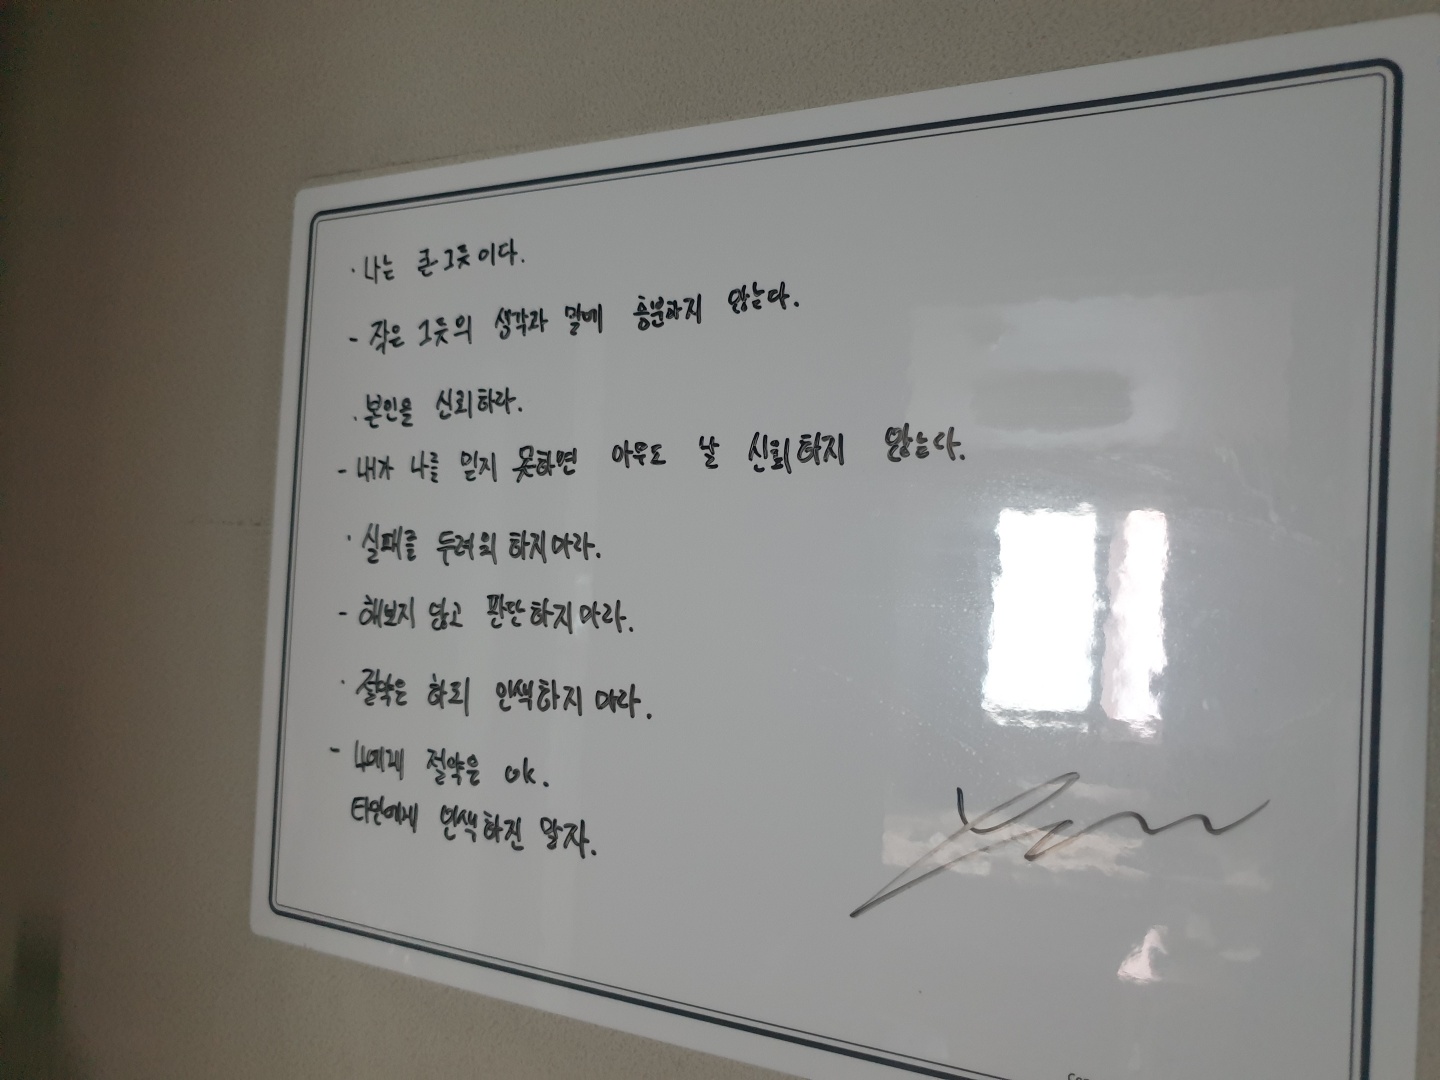 · 나는 큰 그릇이다.
- 작은 그릇의 생각과 말에 흥분하지 않는다.
· 본인을 신뢰하라.
- 내가 나를 믿지 못하면 아무도 날 신뢰하지 않는다.
· 실패를 두려워 하지마라.
- 해보지 않고 판단하지마라.
· 절약은 하되 인색하지 마라.
- 나에게 절약은 ok.
타인에게 인색하진 말자.